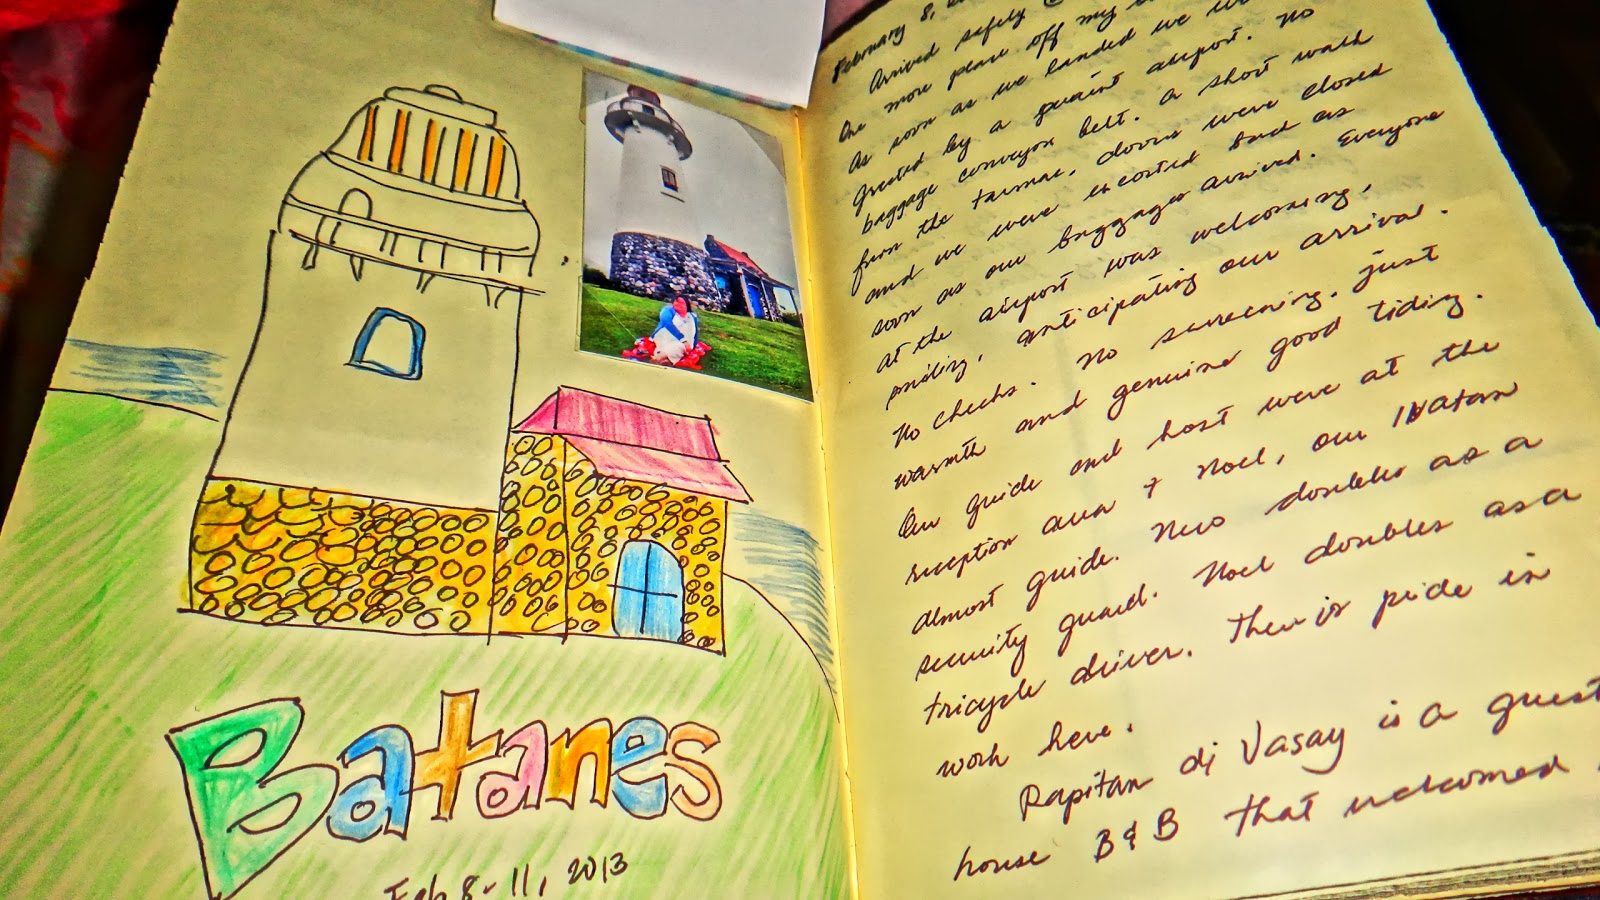 Batanes
Feb 8-11, 2013
February 8,
Arrived safely @
One more place off my
As soon as we landed we
greeted by a quaint airport. No
baggage conveyor belt. A short walk
from the tarmac, doors were closed
and we were escorted back as
soon as our baggages arrived. Everyone
at the airport was welcoming,
smiling, anticipating our arrival.
No checks. No screening. Just
warmth and genuine good tiding.
Our guide and host were at the
reception area & Noel, our Ivatan
almost guide. doubles as a
security guard. Noel doubles as a
tricycle driver. There is pride in
work here.
Rapitan di Vasay is a guest
house B & B that welcomed